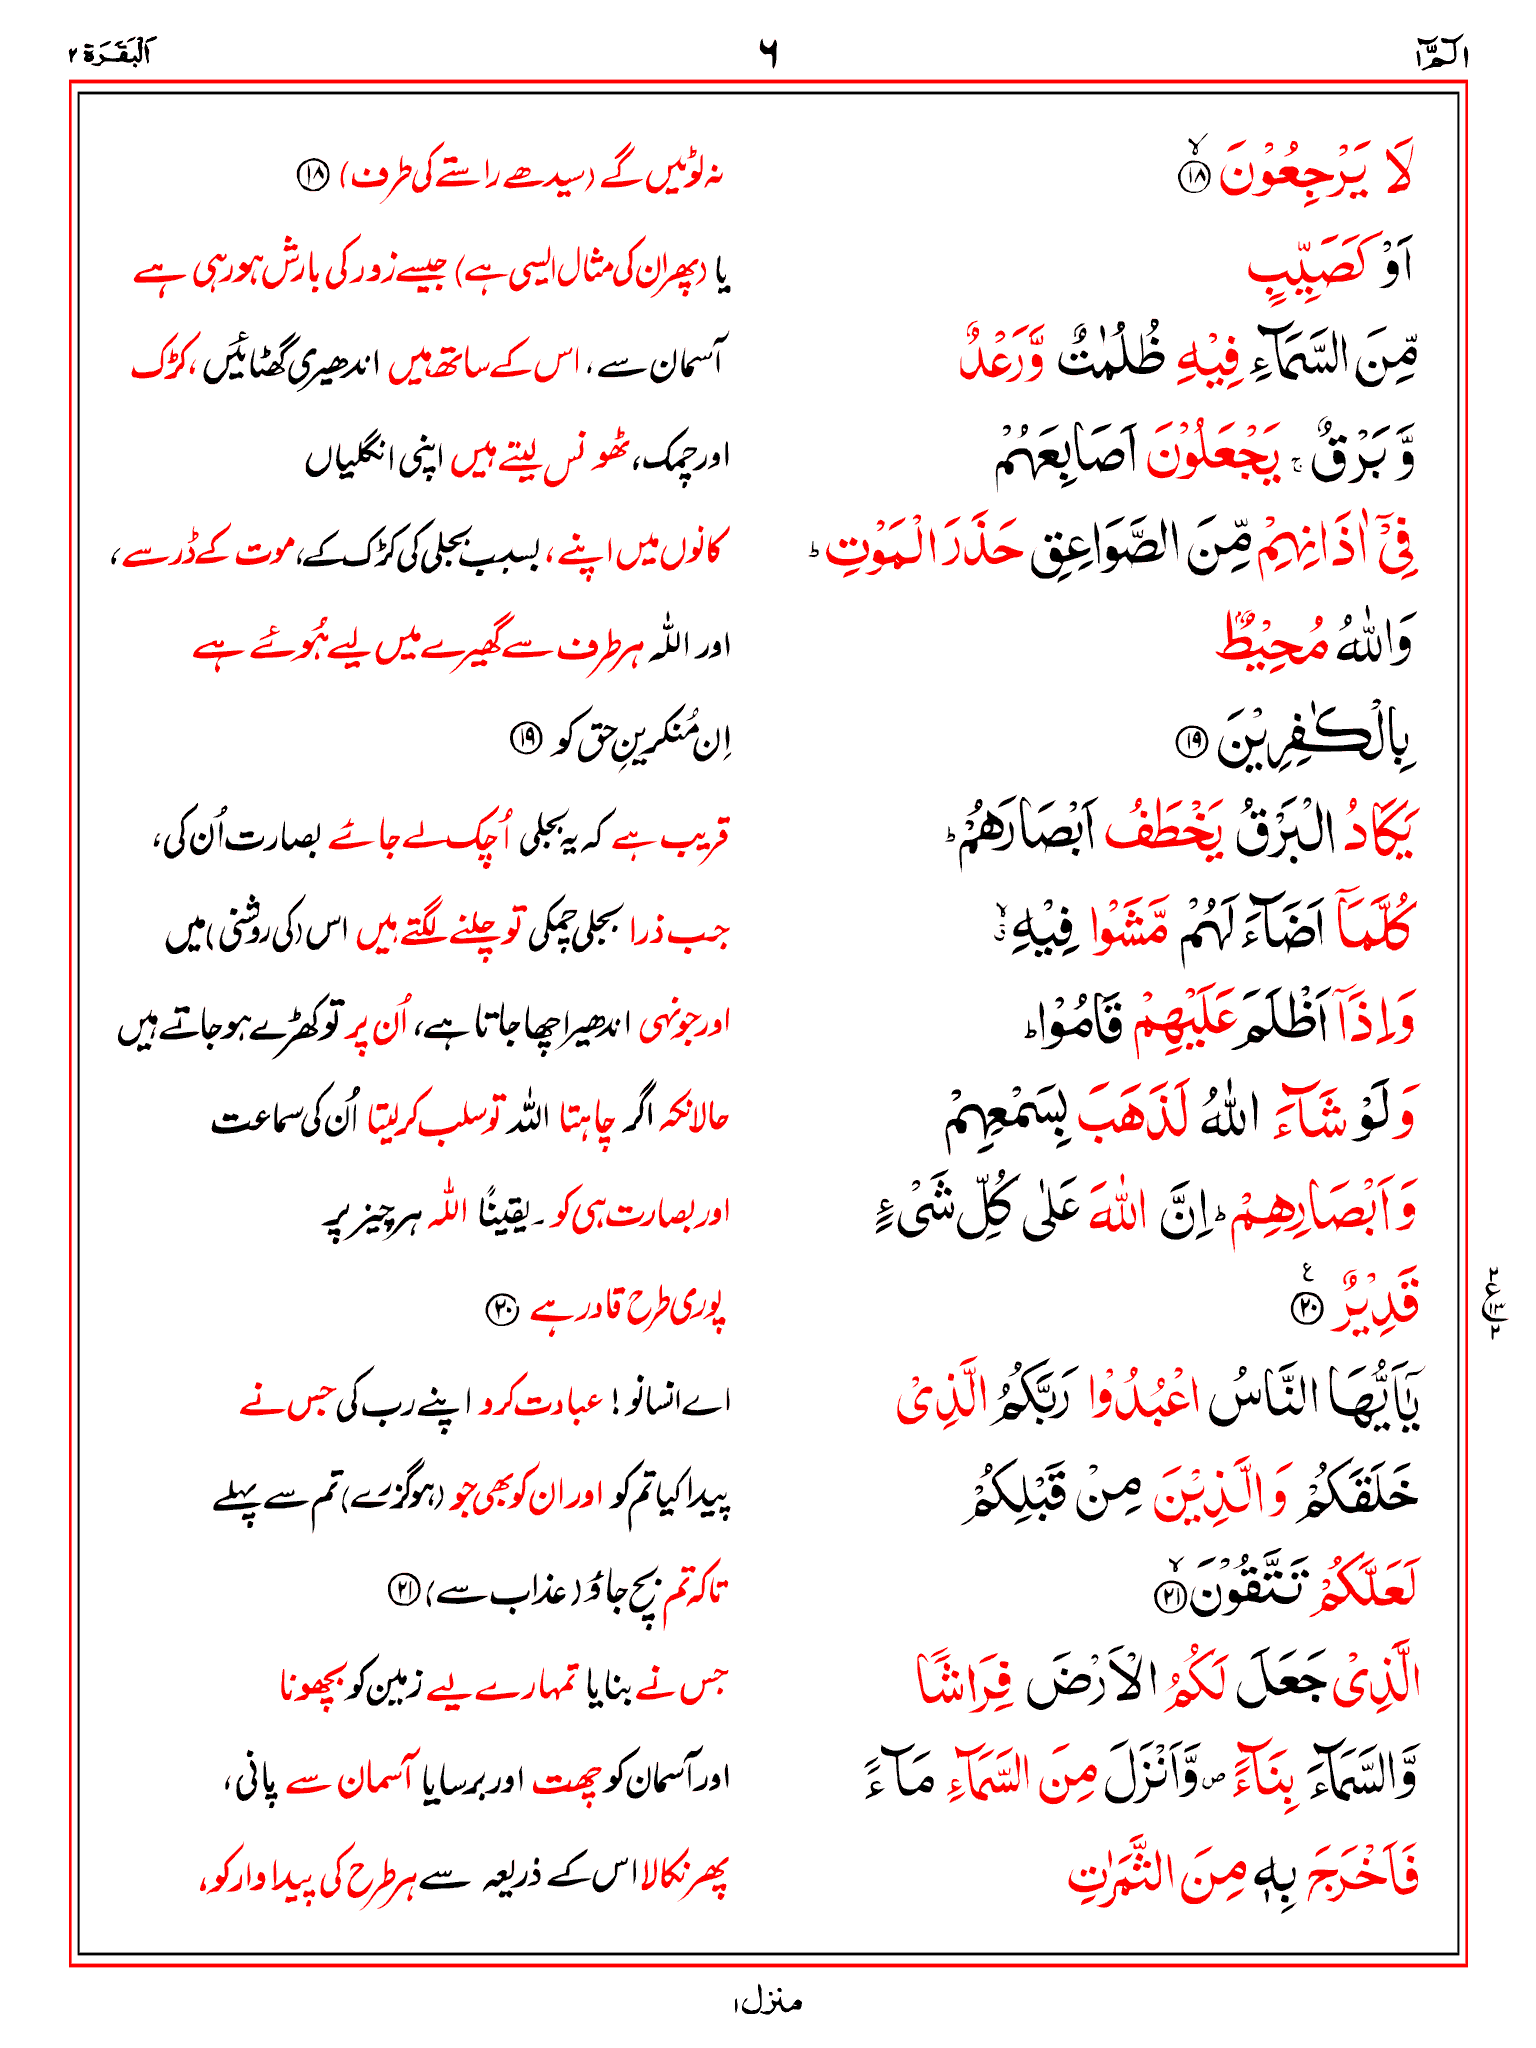 الٓمّٓ ۱ ۶ اَلْبَقَرَة ۲
لَا يَرْجِعُوْنَ ۙ‏﴿۱۸﴾ نہ لوٹیں گے (سیدھے راستے کی طرف) ﴿۱۸﴾
اَوْ كَصَيِّبٍ یا (پھر ان کی مثال ایسی ہے) جیسے زور کی بارش ہو رہی ہے
مِّنَ السَّمَآءِ فِيْهِ ظُلُمٰتٌ وَّرَعْدٌ آسمان سے ، اس کے ساتھ ہیں اندھیری گھٹائیں ، کڑک
وَّ بَرْقٌ ۚ يَجْعَلُوْنَ اَصَابِعَهُمْ اور چمک، ٹھونس لیتے ہیں اپنی انگلیاں
فِىْٓ اٰذَانِهِمْ مِّنَ الصَّوَاعِقِ حَذَرَ الْمَوْتِ ؕ کانوں میں اپنے ، بسبب بجلی کی کڑک کے، موت کے ڈر سے ،
وَاللّٰهُ مُحِيْطٌۢ اور اللہ ہر طرف سے گھیرے میں لیے ہُوئے ہے
بِالْكٰفِرِيْنَ ﴿۱۹﴾ اِن مُنکرینِ حق کو ﴿۱۹﴾
يَكَادُ الْبَرْقُ يَخْطَفُ اَبْصَارَهُمْ ؕ قریب ہے کہ یہ بجلی اُچک لے جائے بصارت اُن کی،
كُلَّمَآ اَضَآءَ لَهُمْ مَّشَوْا فِيْهِ ۙۗ جب ذرا بجلی چمکی تو چلنے لگتے ہیں اس (کی روشنی) میں
وَاِذَآ اَظْلَمَ عَلَيْهِمْ قَامُوْا ؕ اور جونہی اندھیرا چھا جاتا ہے، اُن پر تو کھڑے ہو جاتے ہیں
وَلَوْ شَآءَ اللّٰهُ لَذَهَبَ بِسَمْعِهِمْ حالانکہ اگر چاہتا اللہ تو سلب کر لیتا اُن کی سماعت
وَاَبْصَارِهِمْ ؕ اِنَّ اللّٰهَ عَلٰى كُلِّ شَىْءٍ اور بصارت ہی کو ۔ یقیناً اللہ ہر چیز پر
قَدِيْرٌ ﴿۲۰﴾ ع پوری طرح قادر ہے ﴿۲۰﴾
يٰٓاَيُّهَا النَّاسُ اعْبُدُوْا رَبَّكُمُ الَّذِىْ اے انسانو! عبادت کرو اپنے رب کی جس نے
خَلَقَكُمْ وَالَّذِيْنَ مِنْ قَبْلِكُمْ پیدا کیا تم کو اور ان کو بھی جو (ہو گزرے) تم سے پہلے
لَعَلَّكُمْ تَتَّقُوْنَ ۙ‏﴿۲۱﴾ تاکہ تم بچ جاؤ (عذاب سے) ﴿۲۱﴾
الَّذِىْ جَعَلَ لَكُمُ الْاَرْضَ فِرَاشًا جس نے بنایا تمہارے لیے زمین کو بچھونا
وَّالسَّمَآءَ بِنَآءً ص وَّاَنْزَلَ مِنَ السَّمَآءِ مَآءً اور آسمان کو چھت اور برسایا آسمان سے پانی ،
فَاَخْرَجَ بِهٖ مِنَ الثَّمَرٰتِ پھر نکالا اس کے ذریعہ سے ہر طرح کی پیداوار کو،
منزل ۱